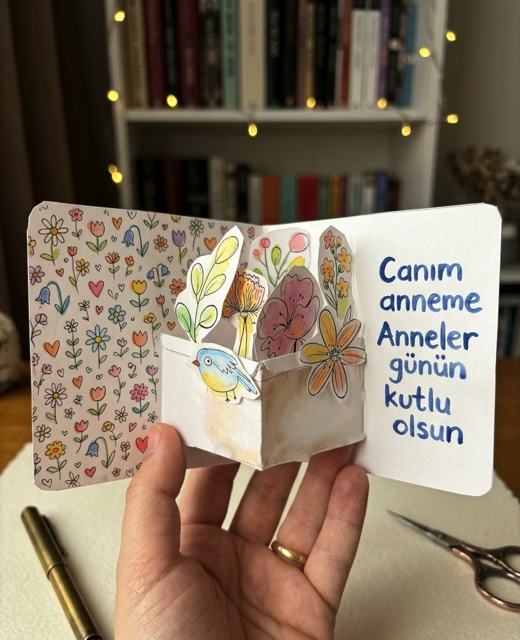 Canım
anneme
Anneler
günün
kutlu
olsun